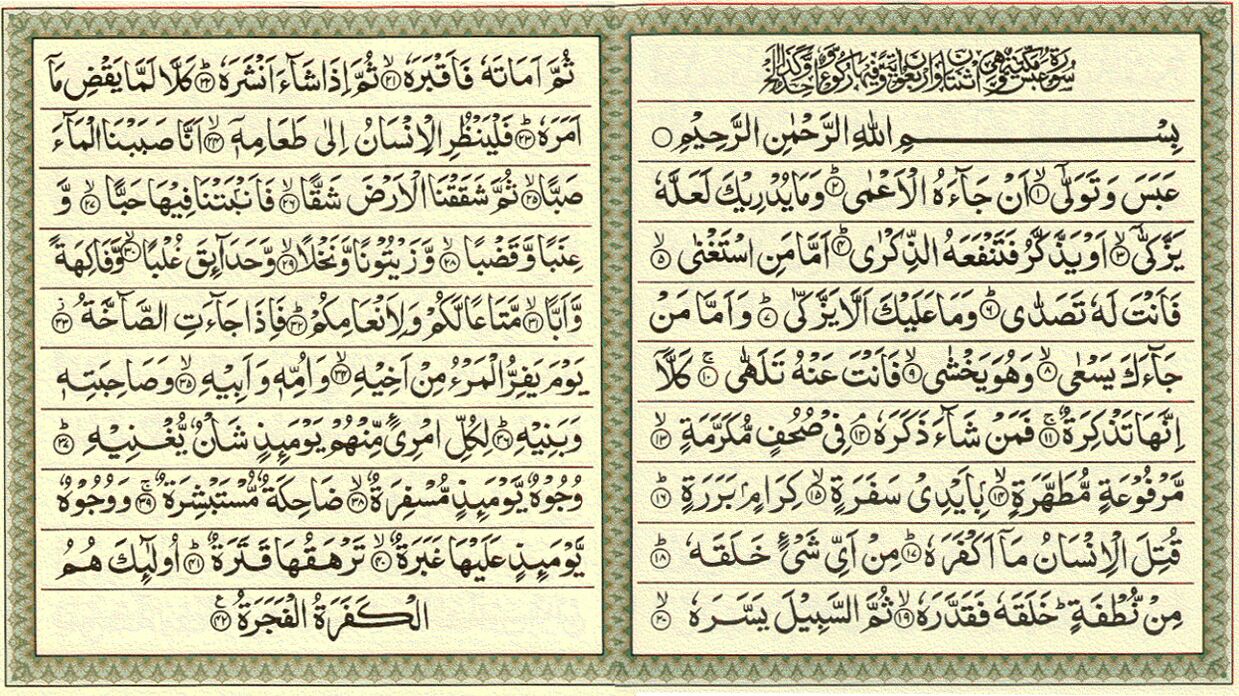 سُورَةُ عَبَسَ مَكِّيَّةٌ وَّهِيَ اثْنَتَانِ وَاَرْبَعُوْنَ اٰيَةً وَّفِيْهَا رُكُوْعٌ وَّاحِدٌ
بِسْمِ اللّٰهِ الرَّحْمٰنِ الرَّحِيْمِ ○
عَبَسَ وَتَوَلّٰىٓ ۙ﴿۱﴾ اَنْ جَآءَهُ الْاَعْمٰى ؕ﴿۲﴾ وَمَا يُدْرِيْكَ لَعَلَّهٗ
يَزَّكّٰىٓ ۙ﴿۳﴾ اَوْ يَذَّكَّرُ فَتَنْفَعَهُ الذِّكْرٰى ؕ﴿۴﴾ اَمَّا مَنِ اسْتَغْنٰى ۙ﴿۵﴾
فَاَنْتَ لَهٗ تَصَدّٰى ؕ﴿۶﴾ وَمَا عَلَيْكَ اَلَّا يَزَّكّٰى ؕ﴿۷﴾ وَاَمَّا مَنْ
جَآءَكَ يَسْعٰى ۙ﴿۸﴾ وَهُوَ يَخْشٰى ۙ﴿۹﴾ فَاَنْتَ عَنْهُ تَلَهّٰى ۚ﴿۱۰﴾ كَلَّاۤ
اِنَّهَا تَذْكِرَةٌ ۚ﴿۱۱﴾ فَمَنْ شَآءَ ذَكَرَهٗ ۘ﴿۱۲﴾ فِيْ صُحُفٍ مُّكَرَّمَةٍ ۙ﴿۱۳﴾
مَّرْفُوْعَةٍ مُّطَهَّرَةٍۭ ۙ﴿۱۴﴾ بِاَيْدِيْ سَفَرَةٍ ۙ﴿۱۵﴾ كِرَامٍۭ بَرَرَةٍ ؕ﴿۱۶﴾
قُتِلَ الْاِنْسَانُ مَاۤ اَكْفَرَهٗ ؕ﴿۱۷﴾ مِنْ اَيِّ شَيْءٍ خَلَقَهٗ ؕ﴿۱۸﴾
مِنْ نُّطْفَةٍ ؕ خَلَقَهٗ فَقَدَّرَهٗ ۙ﴿۱۹﴾ ثُمَّ السَّبِيْلَ يَسَّرَهٗ ۙ﴿۲۰﴾
ثُمَّ اَمَاتَهٗ فَاَقْبَرَهٗ ۙ﴿۲۱﴾ ثُمَّ اِذَا شَآءَ اَنْشَرَهٗ ؕ﴿۲۲﴾ كَلَّا لَمَّا يَقْضِ مَاۤ
اَمَرَهٗ ؕ﴿۲۳﴾ فَلْيَنْظُرِ الْاِنْسَانُ اِلٰى طَعَامِهٖۤ ۙ﴿۲۴﴾ اَنَّا صَبَبْنَا الْمَآءَ
صَبًّا ۙ﴿۲۵﴾ ثُمَّ شَقَقْنَا الْاَرْضَ شَقًّا ۙ﴿۲۶﴾ فَاَنْۢبَتْنَا فِيْهَا حَبًّا ۙ﴿۲۷﴾ وَّ
عِنَبًا وَّقَضْبًا ۙ﴿۲۸﴾ وَّزَيْتُوْنًا وَّنَخْلًا ۙ﴿۲۹﴾ وَّحَدَآئِقَ غُلْبًا ۙ﴿۳۰﴾ وَّفَاكِهَةً
وَّاَبًّا ۙ﴿۳۱﴾ مَّتَاعًا لَّكُمْ وَلِاَنْعَامِكُمْ ؕ﴿۳۲﴾ فَاِذَا جَآءَتِ الصَّآخَّةُ ۫﴿۳۳﴾
يَوْمَ يَفِرُّ الْمَرْءُ مِنْ اَخِيْهِ ۙ﴿۳۴﴾ وَاُمِّهٖ وَاَبِيْهِ ۙ﴿۳۵﴾ وَصَاحِبَتِهٖ
وَبَنِيْهِ ؕ﴿۳۶﴾ لِكُلِّ امْرِئٍ مِّنْهُمْ يَوْمَئِذٍ شَاْنٌ يُّغْنِيْهِ ؕ﴿۳۷﴾
وُجُوْهٌ يَّوْمَئِذٍ مُّسْفِرَةٌ ۙ﴿۳۸﴾ ضَاحِكَةٌ مُّسْتَبْشِرَةٌ ۚ﴿۳۹﴾ وَوُجُوْهٌ
يَّوْمَئِذٍ عَلَيْهَا غَبَرَةٌ ۙ﴿۴۰﴾ تَرْهَقُهَا قَتَرَةٌ ؕ﴿۴۱﴾ اُولٰٓئِكَ هُمُ
الْكَفَرَةُ الْفَجَرَةُ ﴿۴۲﴾